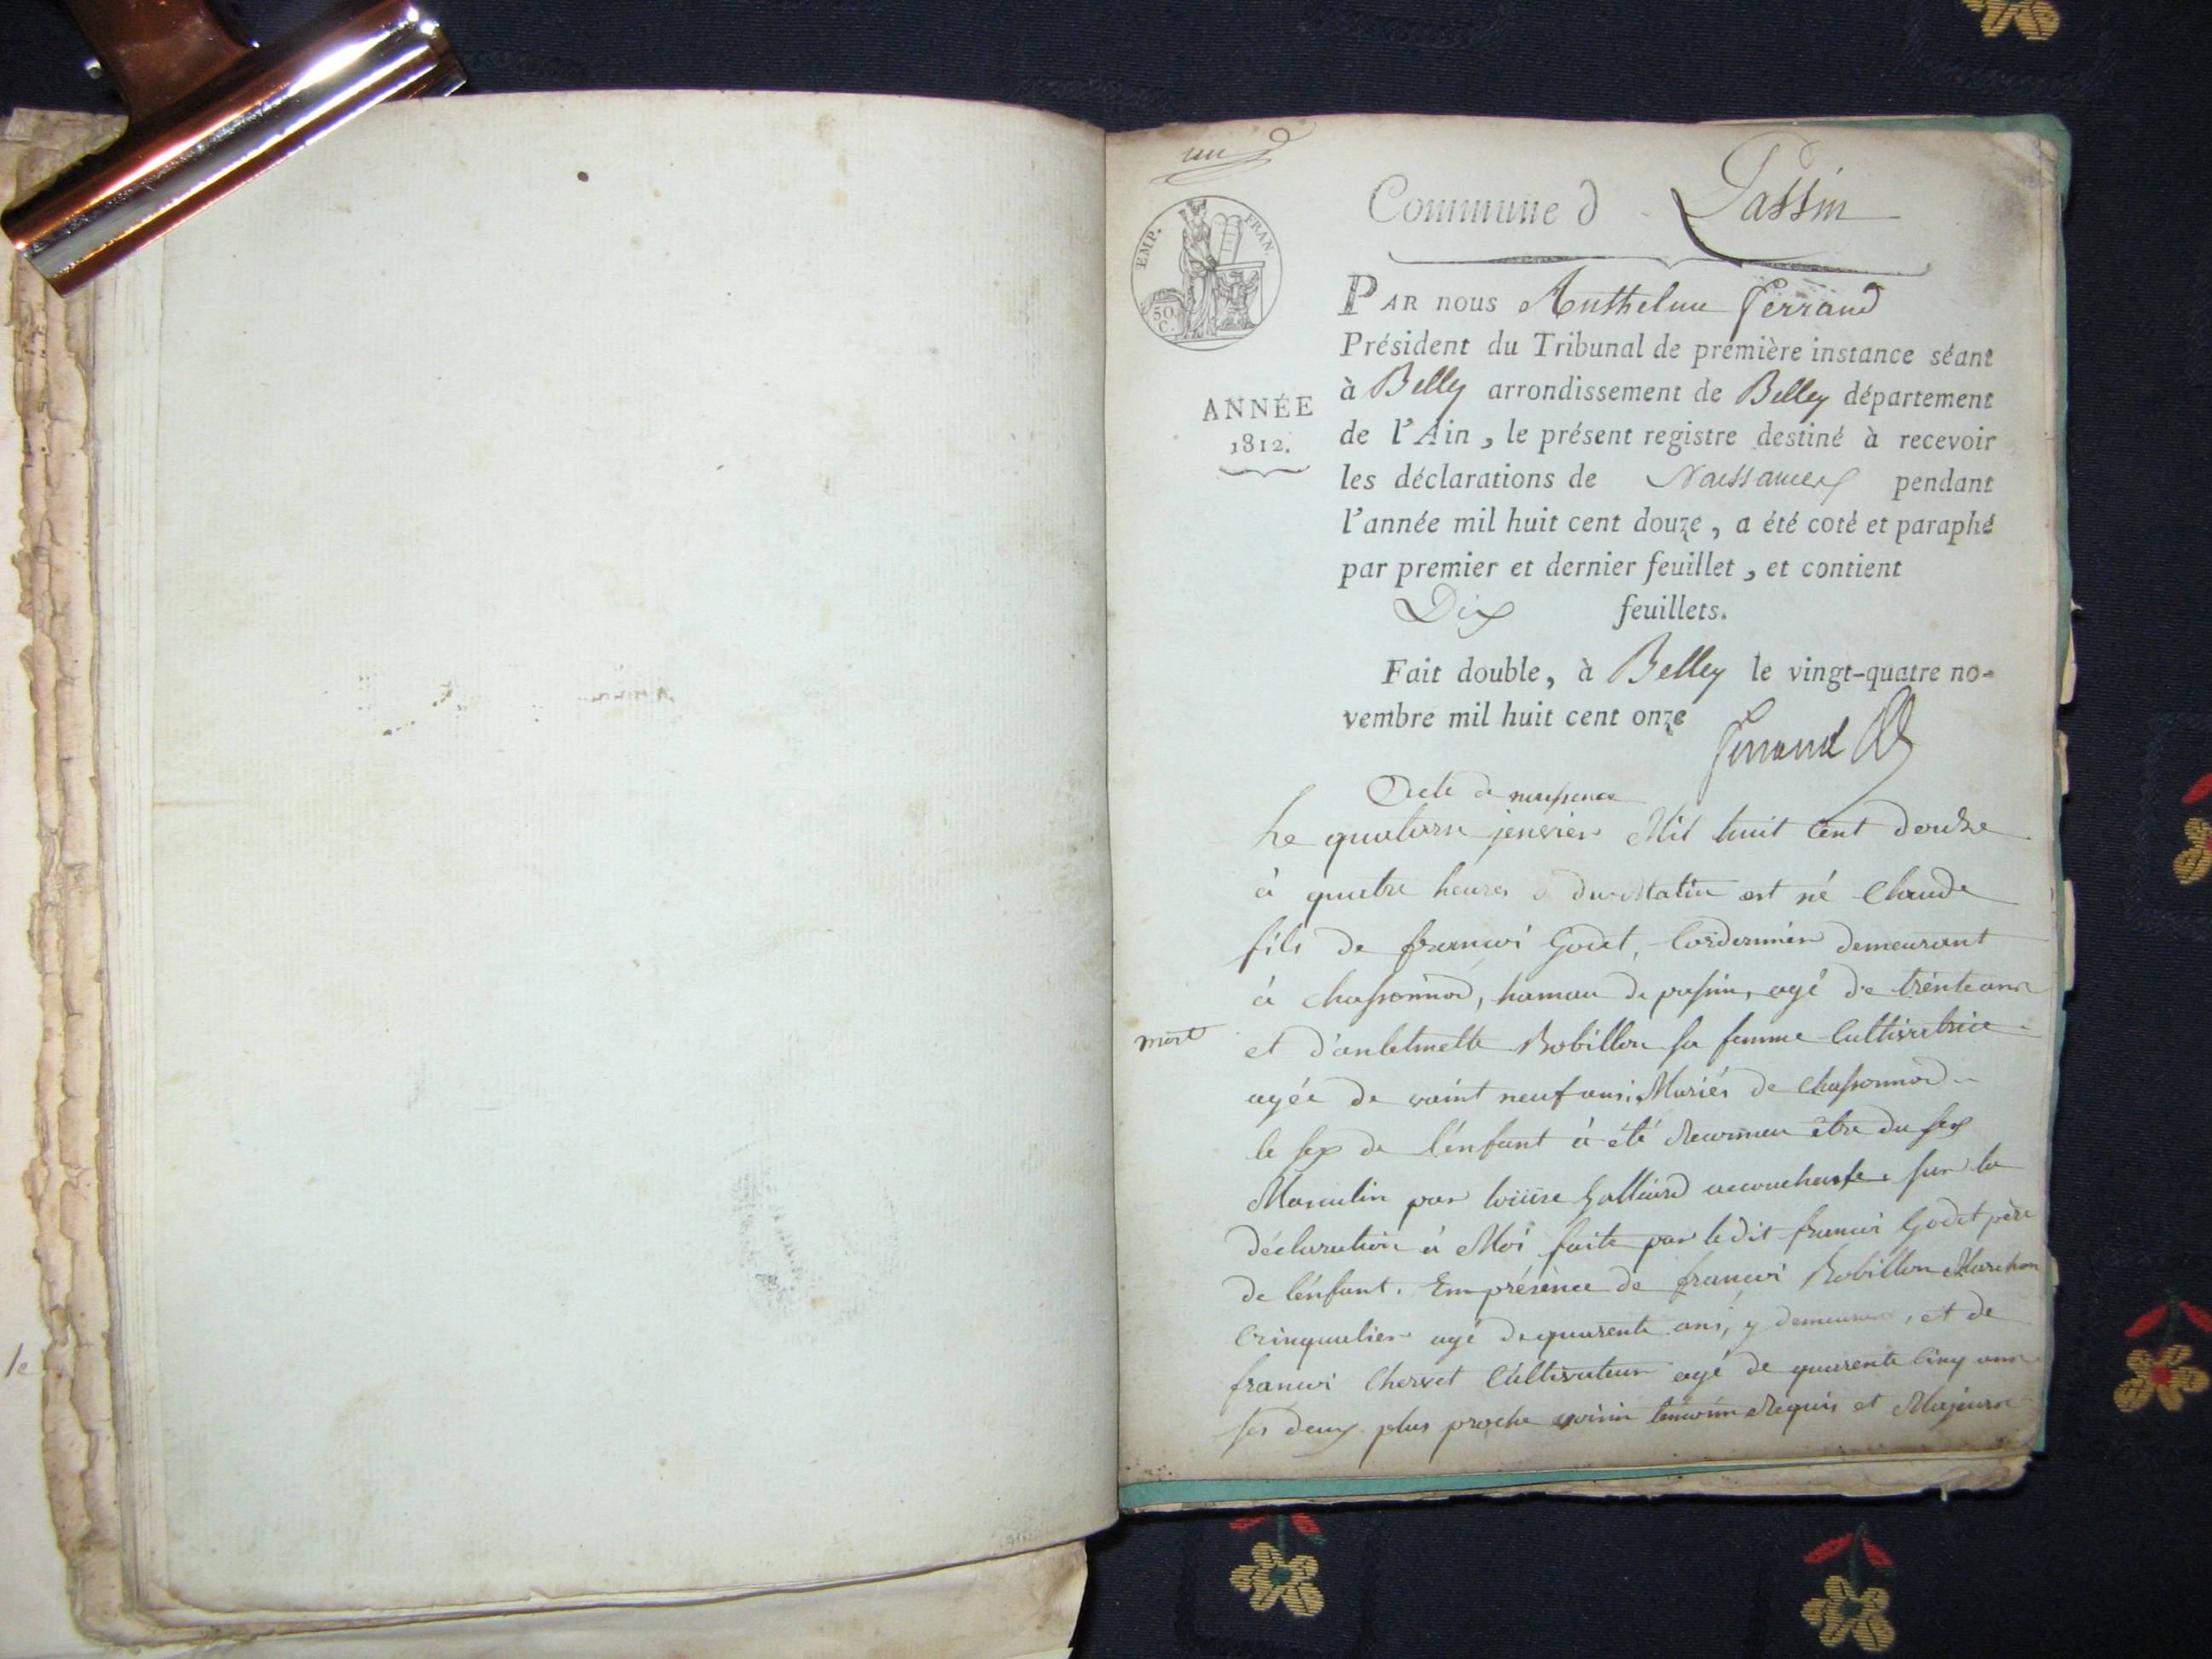 un
EMP. FRAN.
50 C.
Commune d Passin
PAR nous Anthelme Ferrand
Président du Tribunal de première instance séant
à Belley arrondissement de Belley département
de l'Ain, le présent registre destiné à recevoir
les déclarations de Naissances pendant
l'année mil huit cent douze, a été coté et paraphé
par premier et dernier feuillet, et contient
Dix feuillets.
Fait double, à Belley le vingt-quatre no-
vembre mil huit cent onze
ANNÉE
1812.
Ferrand
Acte de neissence
Le quatorse jenvier Mil huit Cent douze
à quatre heures du Matin est né Claude
fils de francoi Godet, Cordonnier demeurant
à chassonnod, hamau de passin, agé de trente ans
mort
et d'antelmette Robillon sa femme Cultivatrice
agée de vaint neuf ans. Mariés de chassonnod
le sex de l'énfant à été Reconneu être du sex
Masculin par Galliard accoucheuse, sur la
déclaration à Moi faite par ledit francoi Godet père
de l'énfant. En présence de francoi Robillon Marchan
Crinqualier agé de quarente ans, y demeurant, et de
francoi Chervet Cultivateur agé de quarente Cinq ans
ses deux plus proche voisin temoin Requis et Majeurs
le